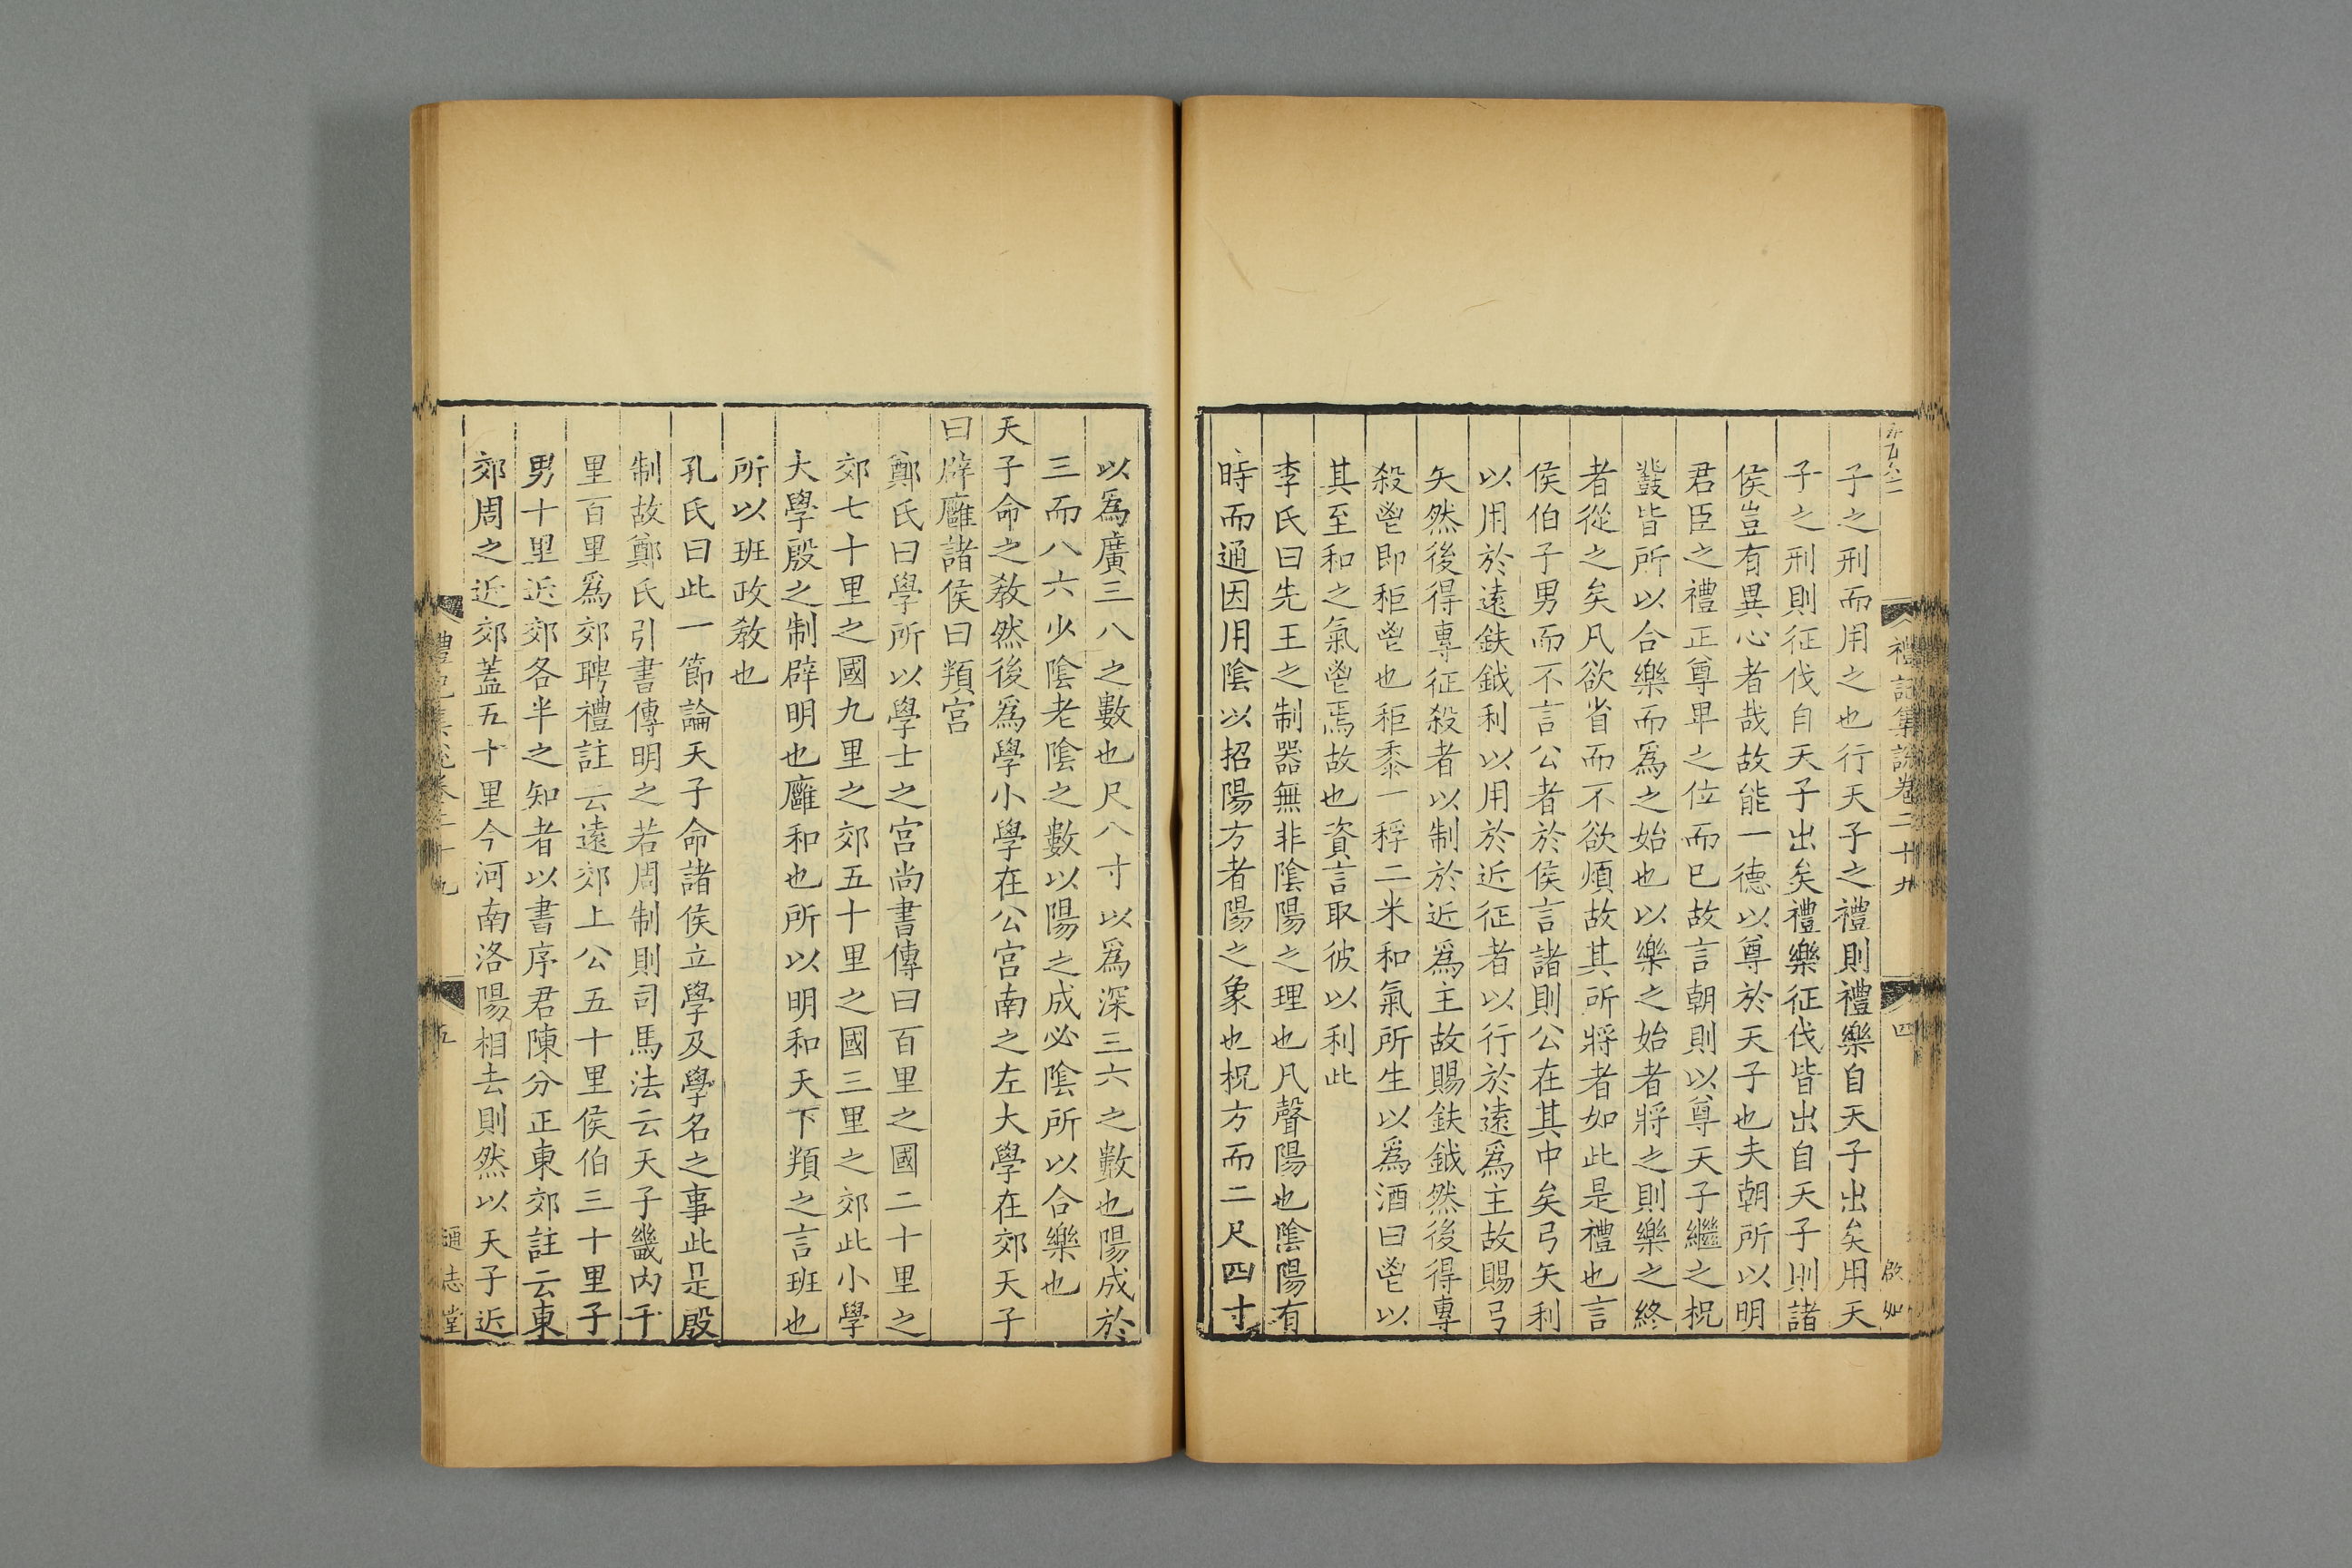 禮記集說卷二十九
四
子之刑而用之也行天子之禮則禮樂自天子出矣用天
子之刑則征伐自天子出矣禮樂征伐皆出自天子則諸
侯豈有異心者哉故能一德以尊於天子也夫朝所以明
君臣之禮正尊卑之位而已故言朝則以尊天子繼之柷
鼗皆所以合樂而爲之始也以樂之始者將之則樂之終
者從之矣凡欲省而不欲煩故其所將者如此是禮也言
侯伯子男而不言公者於侯言諸則公在其中矣弓矢利
以用於遠鈇鉞利以用於近征者以行於遠爲主故賜弓
矢然後得專征殺者以制於近爲主故賜鈇鉞然後得專
殺鬯即秬鬯也秬黍一稃二米和氣所生以爲酒曰鬯以
其至和之氣鬯焉故也資言取彼以利此
李氏曰先王之制器無非陰陽之理也凡聲陽也陰陽有
時而通因用陰以招陽方者陽之象也柷方而二尺四寸
以爲廣三八之數也尺八寸以爲深三六之數也陽成於
三而八六少陰老陰之數以陽之成必陰所以合樂也
天子命之敎然後爲學小學在公宮南之左大學在郊天子
曰辟廱諸侯曰頖宮
鄭氏曰學所以學士之宮尚書傳曰百里之國二十里之
郊七十里之國九里之郊五十里之國三里之郊此小學
大學殷之制辟明也廱和也所以明和天下頖之言班也
所以班政敎也
孔氏曰此一節論天子命諸侯立學及學名之事此是殷
制故鄭氏引書傳明之若周制則司馬法云天子畿內千
里百里爲郊聘禮註云遠郊上公五十里侯伯三十里子
男十里近郊各半之知者以書序君陳分正東郊註云東
郊周之近郊蓋五十里今河南洛陽相去則然以天子近
禮記集說卷二十九
五
通志堂